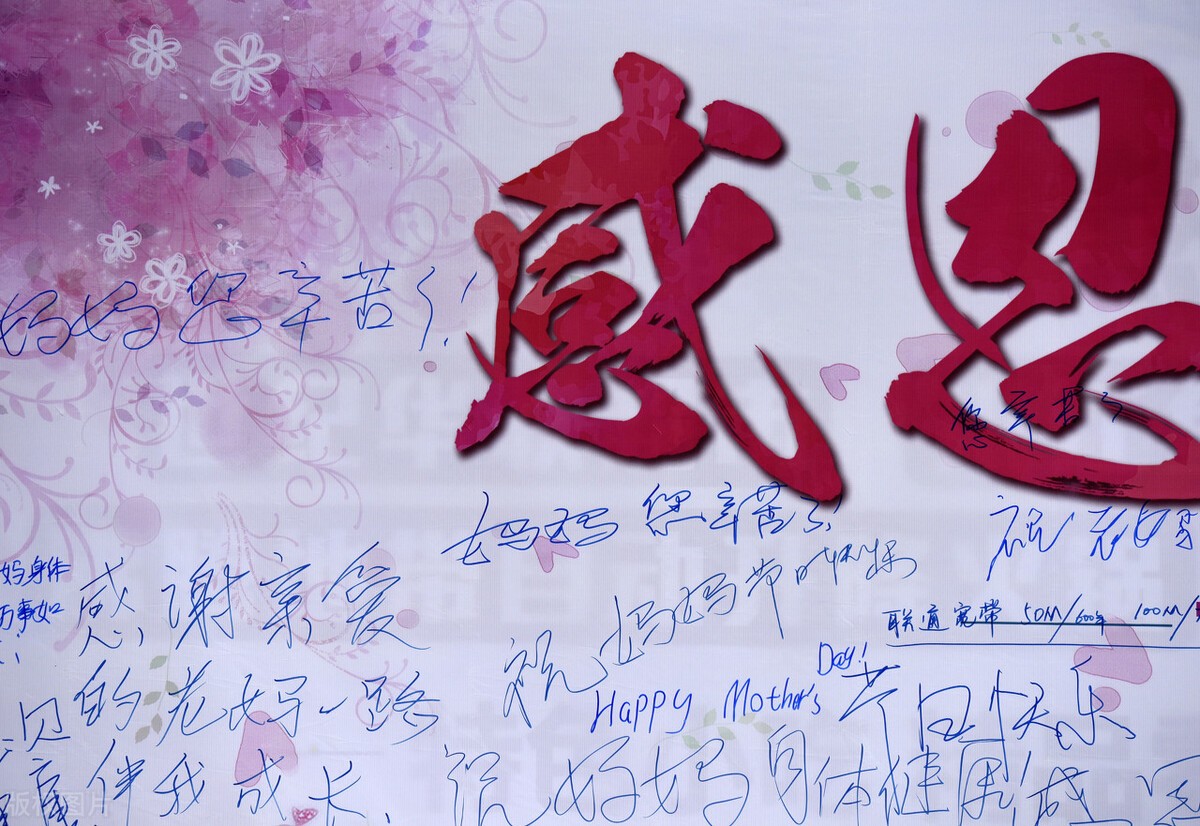 感恩
妈妈您辛苦了！
您辛苦了
妈妈 您辛苦了！
祝老妈
妈身体
万事如
感谢亲爱
的老妈一路
伴我成长
祝妈妈节快乐
联通宽带 50M/600年 100M/
Happy Mother's Day!
节日快乐
祝妈妈身体健康
版权图片